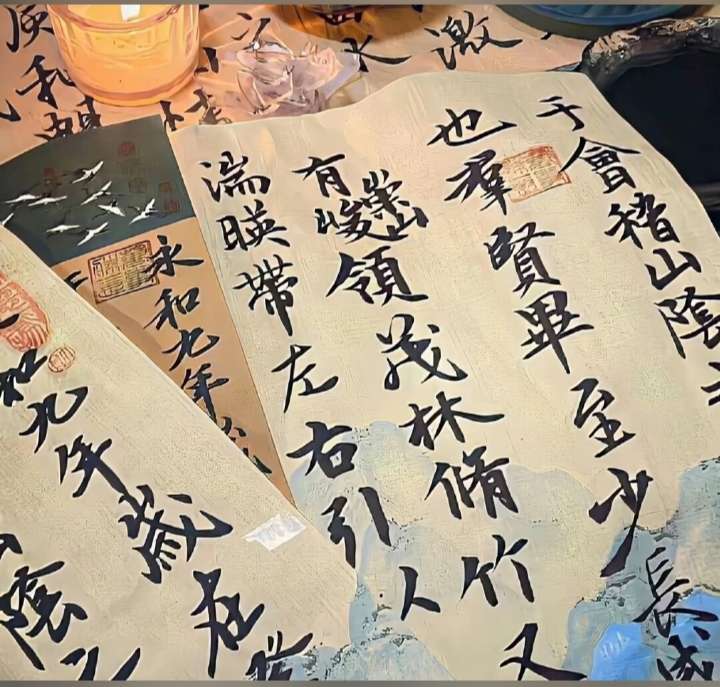 于會稽山陰
也羣賢畢至少長咸
有崇山峻領茂林脩竹又
湍暎帶左右引人
永和九年歲
和九年歲在
山陰之
激
和